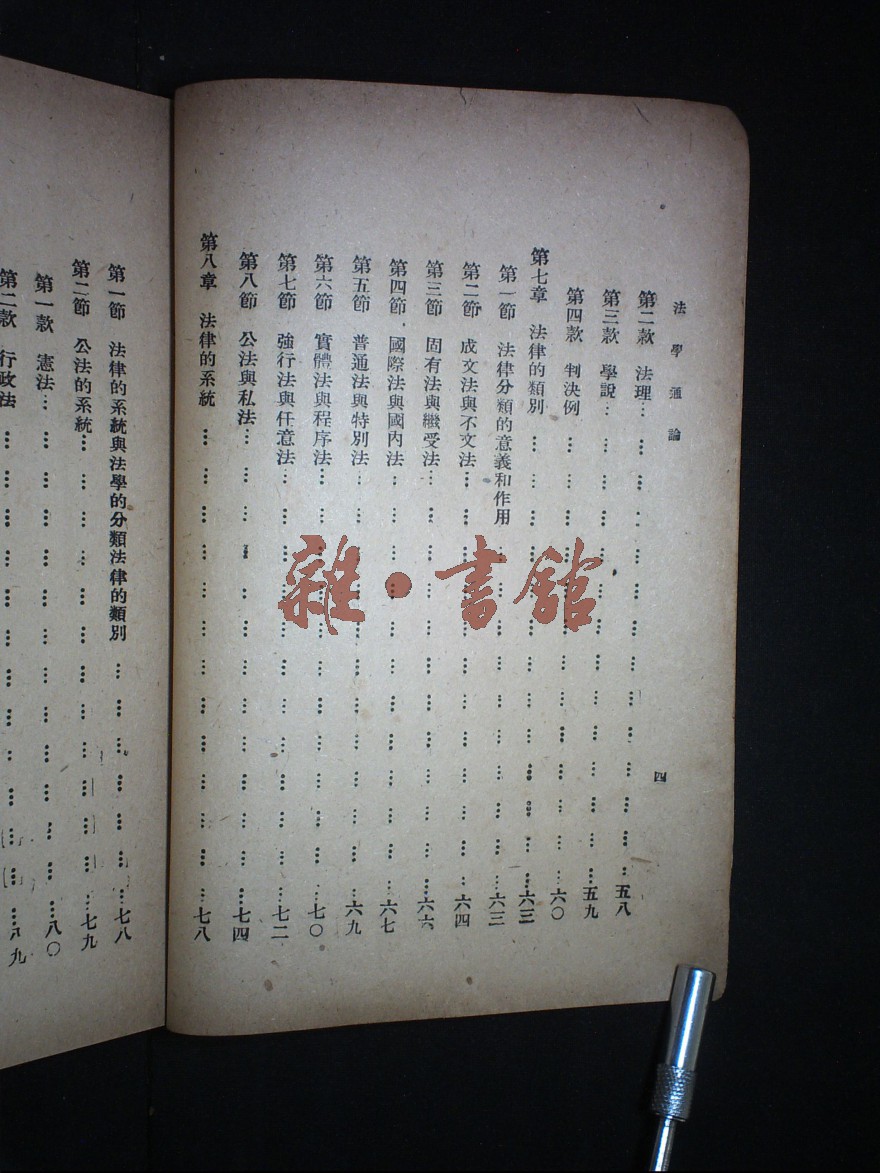 法學通論
四
第二款 法理……五八
第三款 學說……五九
第四款 判決例……六〇
第七章 法律的類別……六三
第一節 法律分類的意義和作用……六三
第二節 成文法與不文法……六四
第三節 固有法與繼受法……六六
第四節 國際法與國內法……六七
第五節 普通法與特別法……六九
第六節 實體法與程序法……七〇
第七節 強行法與任意法……七二
第八節 公法與私法……七四
第八章 法律的系統……七八
第一節 法律的系統與法學的分類法律的類別……七八
第二節 公法的系統……七九
第一款 憲法……八〇
第二款 行政法……八九
雜·書館